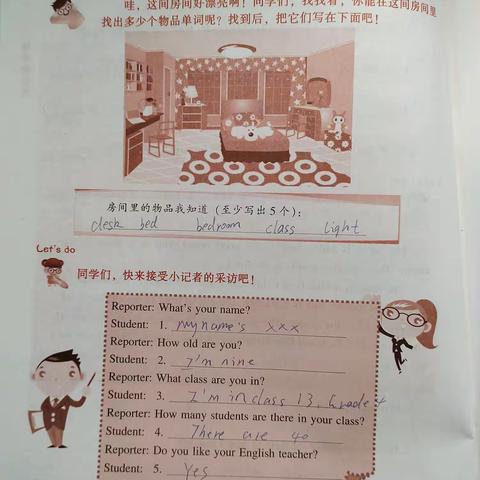 哇，这间房间好漂亮啊！同学们，找找看，你能在这间房间里
找出多少个物品单词呢？找到后，把它们写在下面吧！
房间里的物品我知道（至少写出5个）：
desk bed bedroom class light
Let's do
同学们，快来接受小记者的采访吧！
Reporter: What's your name?
Student: 1. My name's xxx
Reporter: How old are you?
Student: 2. I'm nine
Reporter: What class are you in?
Student: 3. I'm in class 13, Grade 4
Reporter: How many students are there in your class?
Student: 4. There are 40
Reporter: Do you like your English teacher?
Student: 5. Yes